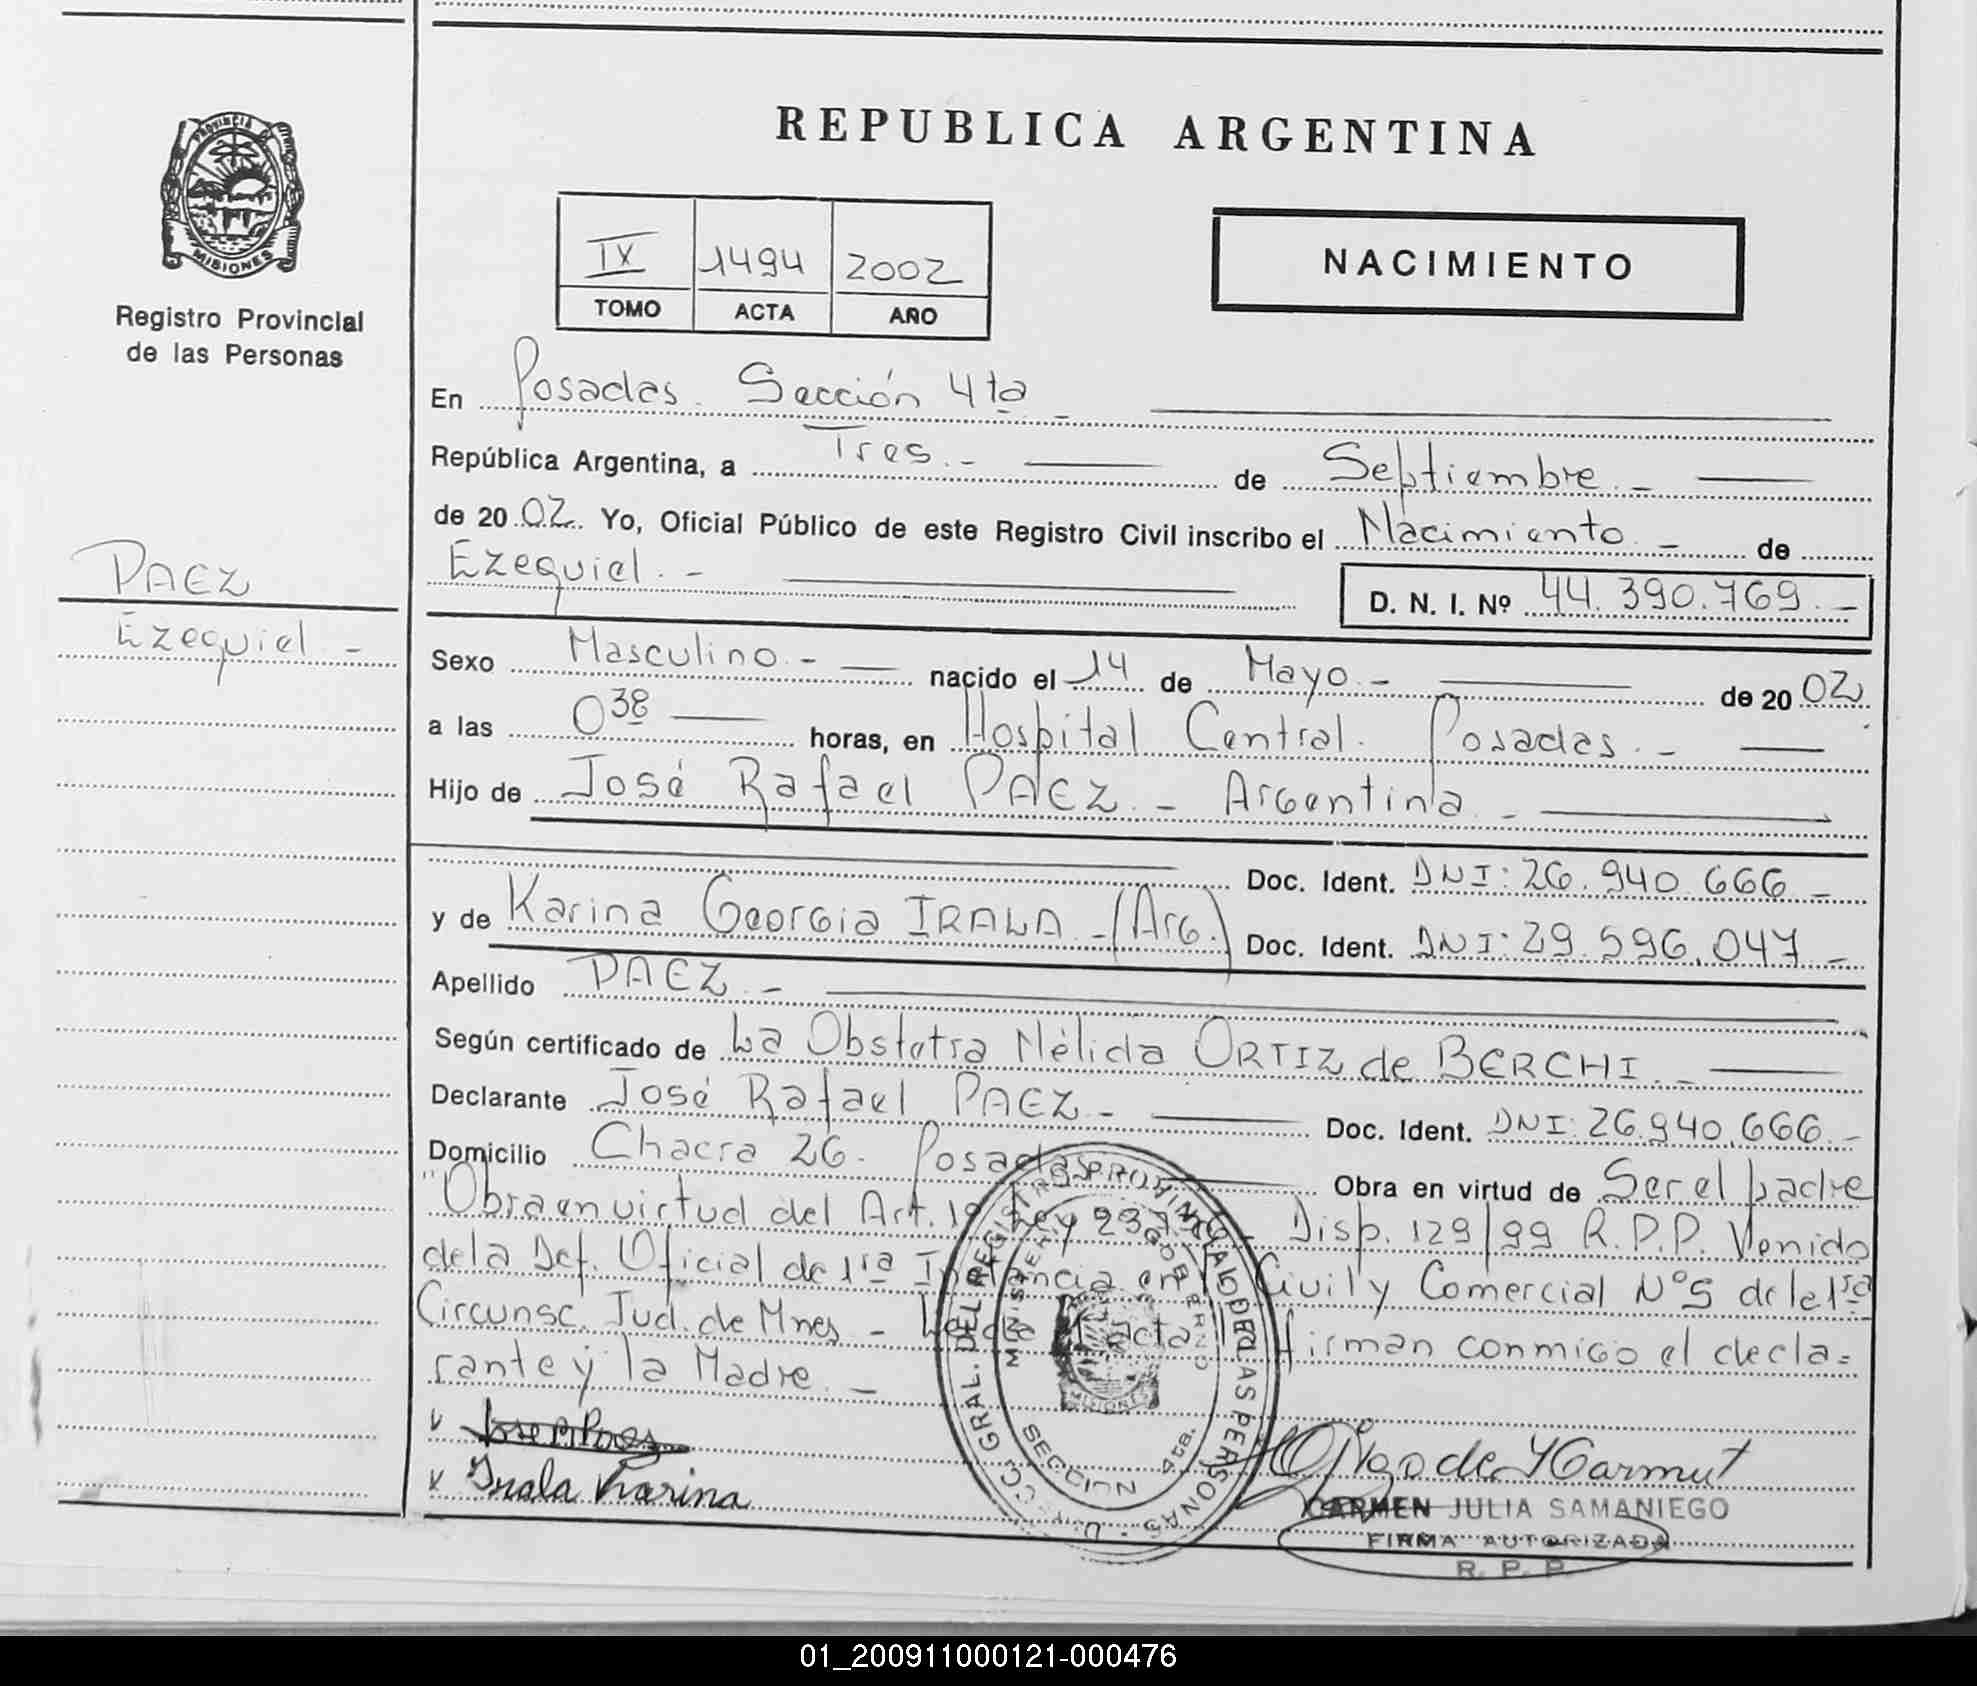 REPUBLICA ARGENTINA
PROVINCIA DE
MISIONES
Registro Provincial
de las Personas
IX 1494 2002
TOMO ACTA AÑO
NACIMIENTO
En Posadas. Sección 4ta -
República Argentina, a Tres.- de Septiembre.-
de 20 02. Yo, Oficial Público de este Registro Civil inscribo el Nacimiento.- de
Ezequiel.-
D. N. I. Nº 44.390.769.-
PAEZ
Ezequiel.-
Sexo Masculino.- nacido el 14 de Mayo.- de 20 02
a las 0 38 horas, en Hospital Central. Posadas.-
Hijo de José Rafael PAEZ.- Argentina.-
Doc. Ident. DNI: 26.940.666.-
y de Karina Georgia IRALA.-(Arg.) Doc. Ident. DNI: 29.596.047.-
Apellido PAEZ.-
Según certificado de La Obstetra Nélida ORTIZ de BERCHI.-
Declarante José Rafael PAEZ.- Doc. Ident. DNI: 26.940.666.-
Domicilio Chacra 26. Posadas Obra en virtud de Ser el padre
"Obra en virtud del Art. 1º Ley Disp. 129/99 R.P.P. Venido
de la Def. Oficial de 1ra Instancia en lo Civil y Comercial Nº5 de la 1ra
Circunsc. Jud. de Mnes - Leída el acta la firman conmigo el decla=
rante y la Madre.-
v Jose R Paez
v Irala Karina
DIRECC. GRAL. DEL REGISTRO PROVINCIAL DE LAS PERSONAS
MINISTERIO DE GOBIERNO
MISIONES
SECCION 4ta.
CARMEN JULIA SAMANIEGO
FIRMA AUTORIZADA
R. P. P.
01_200911000121-000476